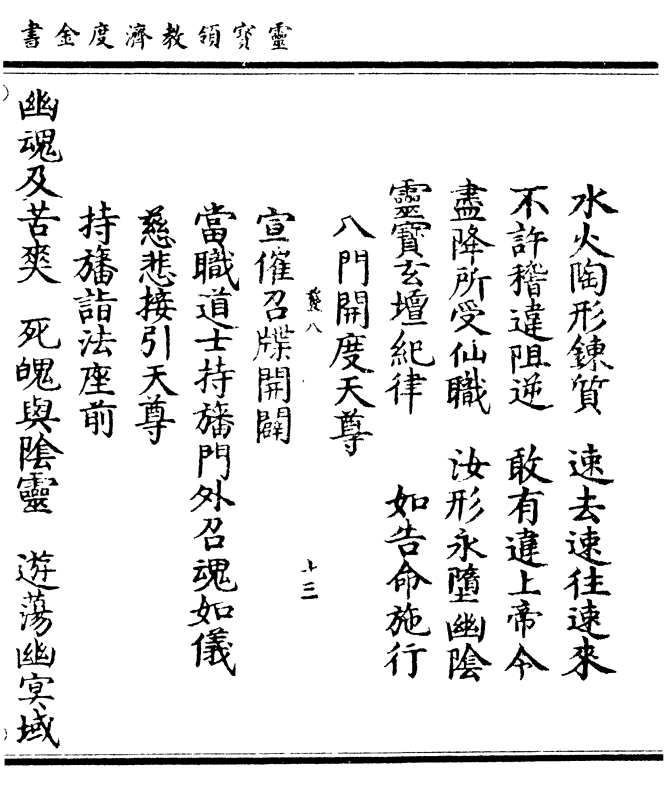 靈寳領教濟度金書
水火陶形鍊質　速去速往速來
不許稽違阻逆　敢有違上帝令
盡降所受仙職　汝形永墮幽陰
靈寶玄壇紀律　如告命施行
八門開度天尊
癹八　十三
宣催召牒開闢
當職道士持旛門外召魂如儀
慈悲接引天尊
持旛詣法座前
幽魂及苦爽　死魄與陰靈　遊蕩幽冥域